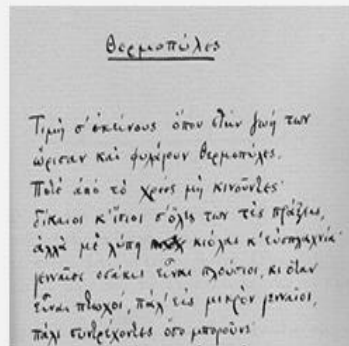 Θερμοπύλες
Τιμή σ' εκείνους όπου στην ζωή των
ώρισαν και φυλάγουν Θερμοπύλες.
Ποτέ από το χρέος μη κινούντες·
δίκαιοι κ' ίσιοι σ' όλες των τες πράξεις,
αλλά με λύπη κιόλας κ' ευσπλαχνία·
γενναίοι οσάκις είναι πλούσιοι, κι όταν
είναι πτωχοί, πάλ' εις μικρόν γενναίοι,
πάλι συντρέχοντες όσο μπορούνε·